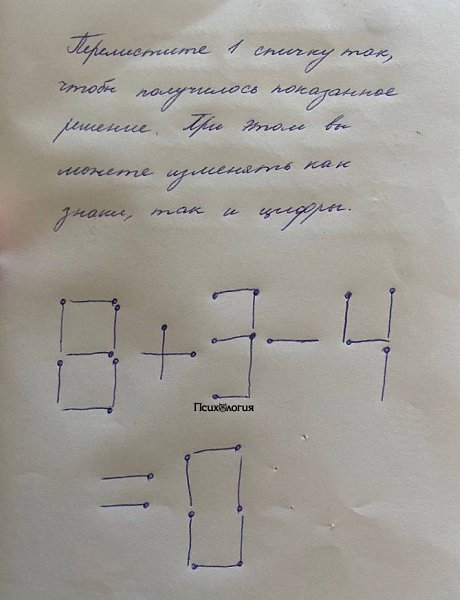 Переместите 1 спичку так,
чтобы получилось показанное
решение. При этом вы
можете изменять как
знаки, так и цифры.
8 + 3 - 4
Психология
= 0